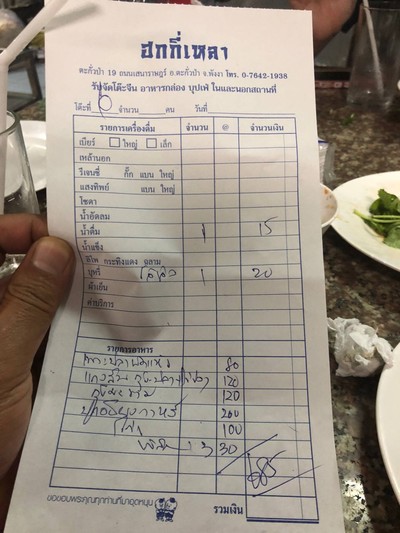 ฮกกี่เหลา
ตะกั่วป่า 19 ถนนเสนาราษฎร์ อ.ตะกั่วป่า จ.พังงา โทร. 0-7642-1938
รับจัดโต๊ะจีน อาหารกล่อง บุปเฟ่ ในและนอกสถานที่
โต๊ะที่ 6 จำนวน คน วันที่
รายการเครื่องดื่ม จำนวน @ จำนวนเงิน
เบียร์ ใหญ่ เล็ก
เหล้านอก
รีเจนซี่ กั๊ก แบน ใหญ่
แสงทิพย์ แบน ใหญ่
โซดา
น้ำอัดลม
น้ำดื่ม 1 15
น้ำแข็ง
ลิโพ กระทิงแดง ฉลาม
บุหรี่ 1 20
ผ้าเย็น
ค่าบริการ
รายการอาหาร
80
120
120
200
100
3 30
685
รวมเงิน
ขอขอบพระคุณทุกท่านที่มาอุดหนุน